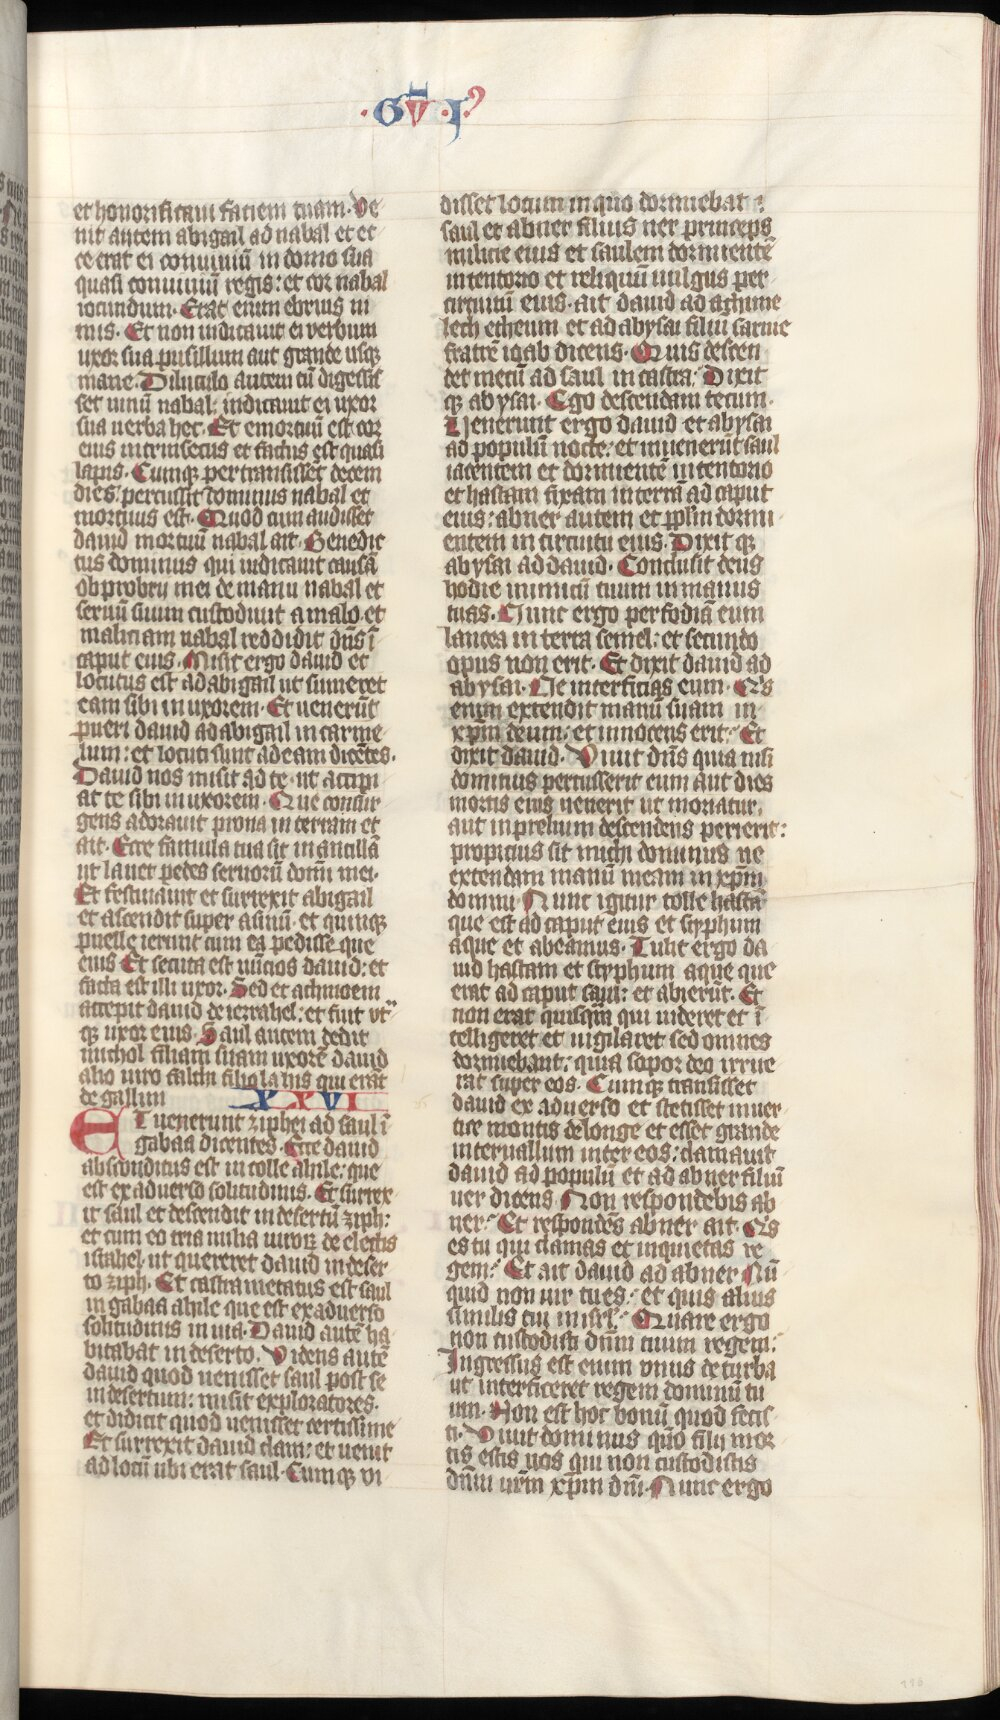 ·G V̄ · I·
et honorificaui faciem tuam. Ve
nit autem abigail ad nabal et ec
ce erat ei conuiuiū in domo sua
quasi conuiuiū regis: et cor nabal
iocundum. Erat enim ebrius ni
mis. Et non indicauit ei verbum
uxor sua pusillum aut grande usqꝫ
mane. Diluculo autem cū digessis
set uinū nabal: indicauit ei uxor
sua uerba hec. Et emortuū est cor
eius intrinsecus et factus est quasi
lapis. Cumqꝫ pertransissēt decem
dies: percussit dominus nabal et
mortuus est. Quod cum audisset
dauid mortuū nabal ait. Benedic
tus dominus qui iudicauit causā
obprobrij mei de manu nabal et
seruū suum custodiuit a malo et
maliciam nabal reddidit dn̄s ī
caput eius. Misit ergo dauid et
locutus est ad abigail ut sumeret
eam sibi in uxorem. Et uenerūt
pueri dauid ad abigail in carme
lum: et locuti sunt ad eam dicētes.
Dauid nos misit ad te ut accipi
at te sibi in uxorem. Que consur
gens adorauit prona in terram et
ait. Ecce famula tua sit in ancillā
ut lauet pedes seruorū domī mei.
Et festinauit et surrexit abigail
et ascendit super asinū et quinqꝫ
puelle ierunt cum ea pedisse que
eius Et secuta est nūcios dauid: et
facta est illi uxor. Sed et achinoem
accepit dauid de iezrahel: et fuit vt͛
qꝫ uxor eius. Saul autem dedit
michol filiam suam uxorē dauid
alio uiro falthi filio lahis qui erāt
de gallim XXVI
Et uenerunt ziphei ad saul ī
gabaa dicentes. Ecce dauid
absconditus est in colle achile: que
est ex aduerso solitudinis. Et surrex
it saul et descendit in desertū ziph:
et cum eo tria milia uiroꝝ de electis
israhel. ut quereret dauid in deser
to ziph. Et castrametatus est saul
in gabaa achile que est exaduerso
solitudinis in uia. Dauid autē ha
bitabat in deserto. Videns autē
dauid quod uenisset saul post se
in desertum: misit exploratores.
et didicit quod uenisset certissime
Et surrexit dauid clam: et uenit
ad locū ubi erat saul. Cumqꝫ vi
disset locum in quo dormiebat
saul et abner filius ner princeps
milicie eius et saulem dormientē
in tentorio et reliquū uulgus per
circuitū eius. ait dauid ad achime
lech etheum et ad abysai filiū saruie
fratrē ioab dicens. Quis descen
det mecū ad saul in castra. Dixit
qꝫ abysai. Ego descendam tecum.
Uenerunt ergo dauid et abysai
ad populū nocte. et inuenerūt saul
iacentem et dormientē in tentorio
et hastam fixam in terrā ad caput
eius: abner autem et pplm dormi
entem in circuitu eius. Dixit qꝫ
abysai ad dauid. Conclusit deus
hodie inimicū tuum in manus
tuas. Nunc ergo perfodiā eum
lancea in terra semel: et secundo
opus non erit. Et dixit dauid ad
abysai. Ne interficias eum. Q͛s
enim extendit manū suam in
xp̄m deum: et innocens erit. Et
dixit dauid. Viuit dn̄s quia nisi
dominus percusserit eum aut dies
mortis eius uenerit ut moriatur,
aut in prelium descendens perierit:
propicius sit michi dominus ne
extendam manū meam in xp̄m
domini Nunc igitur tolle hastā
que est ad caput eius et scyphum
aque et abeamus. Tulit ergo da
uid hastam et scyphum aque que
erat ad caput saul: et abierūt. Et
non erat quisq̄m qui uideret et ī
telligeret et uigilaret sed omnes
dormiebant: quia sopor deo irrue
rat super eos. Cumqꝫ transisset
dauid ex aduerso et stetisset in uer
tice montis de longe et esset grande
interuallum inter eos: clamauit
dauid ad populū et ad abner filiū
ner dicens. Non respondebis ab
ner. Et respondēs abner ait. Q͛s
es tu qui clamas et inquietas re
gem. Et ait dauid ad abner Nū
quid non uir tu es. et quis alius
similis tui in isrl̄. Quare ergo
non custodisti dn̄m tuum regem.
Ingressus est enim vnus de turba
ut interficeret regem dominū tu
um. Non est hoc bonū quod fecis
ti. Viuit dominus quō filij mor
tis estis uos qui non custodistis
dn̄m ur̄m xp̄m dn̄i. Nunc ergo